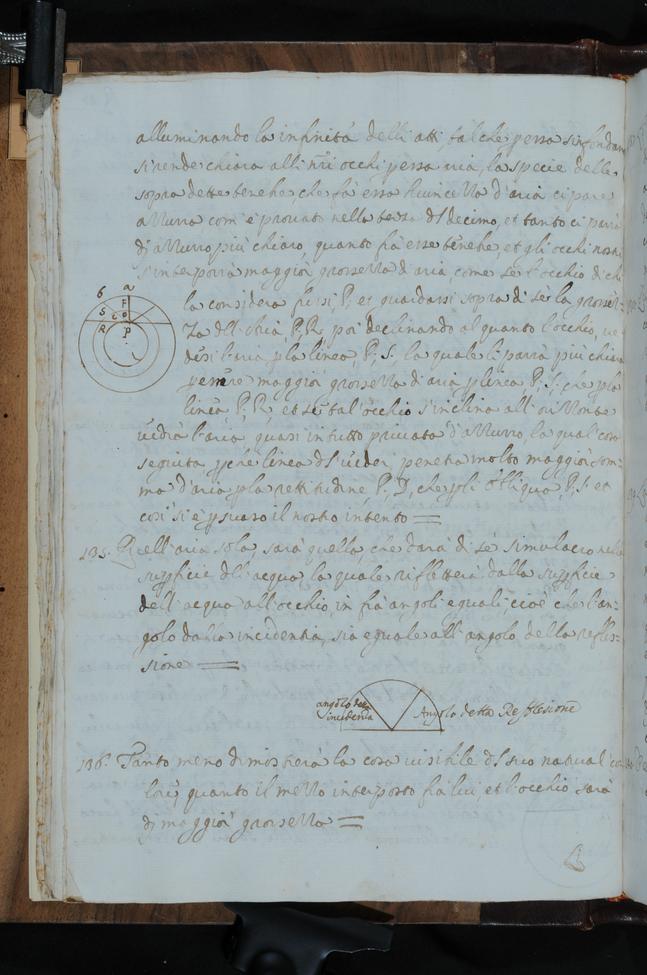 alluminando la infinità delli atti, tal che per essa si
si rende chiara alli nri occhi per essa aria, la specie delle
sopra dette benche che fà essa
azzurra, com' è provato nella terza dl decimo, et tanto ci parrà
d'azzurro più chiaro, quanto frà esse benebe, et gl'occhi nostri
s'interporrà maggior grossezza d'aria, come se l'occhio di chi
6 a
la considera fussi, P, et guardassi sopra di sè la grossez-
F
S c o
za dll'aria, P.R. poi declinando al quanto l'occhio, ve-
R P
dessi l'aria p la linea, P, S. la quale li parrà più chiara
per essere maggior grossezza d'aria p linea P, S, che p la
linea P, R, et se tal' occhio s'inclina all'orizzonte
vedrà l'aria quasi in tutto privata d'azzurro, la qual cosa
seguita, pche linea dl veder, penetra molto maggior som-
ma d'aria p la rettitudine P, D, che p li obliqua P, S, et
così si è psuaso il nostro intento =
135. Quell'aria sola, sarà quella, che darà di sè simulacro nella
supficie dll'acqua la quale rifletterà dalla supficie
dell'acqua all'occhio, in frà angoli eguali, cioè che l'an-
golo dalla incidentia, sia eguale all'angolo della refles-
sione =
angolo della
incidentia Angolo detta Reflesione
136. Tanto meno dimostrerà la cosa visibile dl suo natural co-
lore, quanto il mezzo interposto frà lui, et l'occhio sarà
di maggior grossezza =